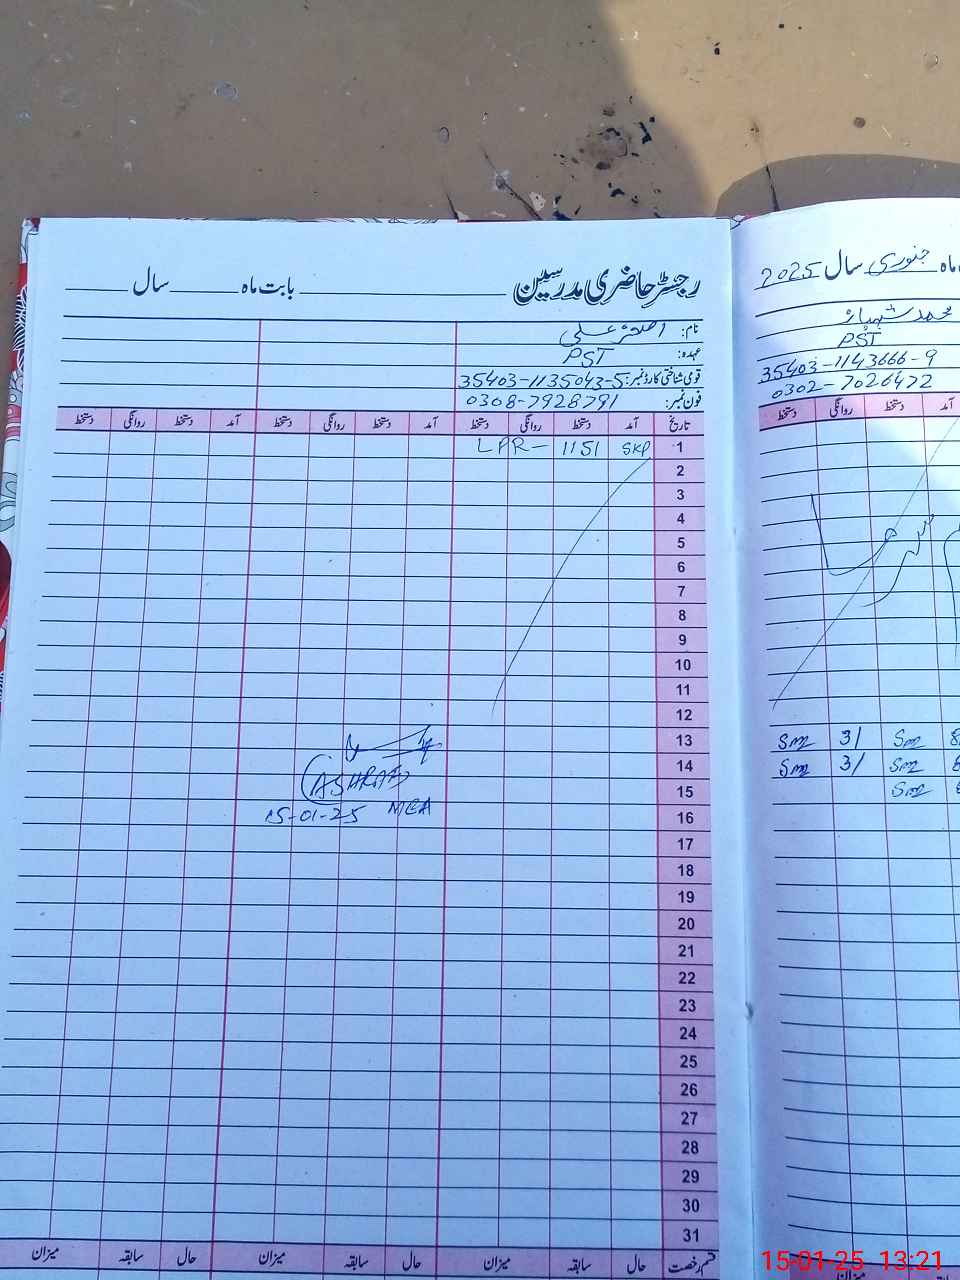 رجسٹر حاضری مدرسین بابت ماہ سال
نام: اصغر علی
عہدہ: PST
قومی شناختی کارڈ نمبر: 35403-1135043-5
فون نمبر: 0308-7928791
تاریخ آمد دستخط روانگی دستخط آمد دستخط روانگی دستخط آمد دستخط روانگی دستخط
1 SKP 1151 LPR-
2
3
4
5
6
7
8
9
10
11
12
13
14
15
16
17
18
19
20
21
22
23
24
25
26
27
28
29
30
31
(ASHRAF)
15-01-25 MEA
قسم رخصت حال سابقہ میزان حال سابقہ میزان حال سابقہ میزان
ماہ جنوری سال 2025
محمد شہباز
PST
35403-1143666-9
0302-7026472
آمد دستخط روانگی دستخط
8 Sm 3/ Sm
8 Sm 3/ Sm
8 Sm
میزان
15-01-25 13:21